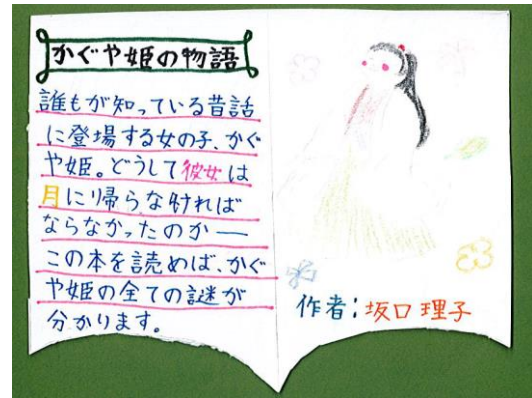 かぐや姫の物語
誰もが知っている昔話
に登場する女の子、かぐ
や姫。どうして彼女は
月に帰らなければ
ならなかったのか――
この本を読めば、かぐ
や姫の全ての謎が
分かります。
作者:坂口理子